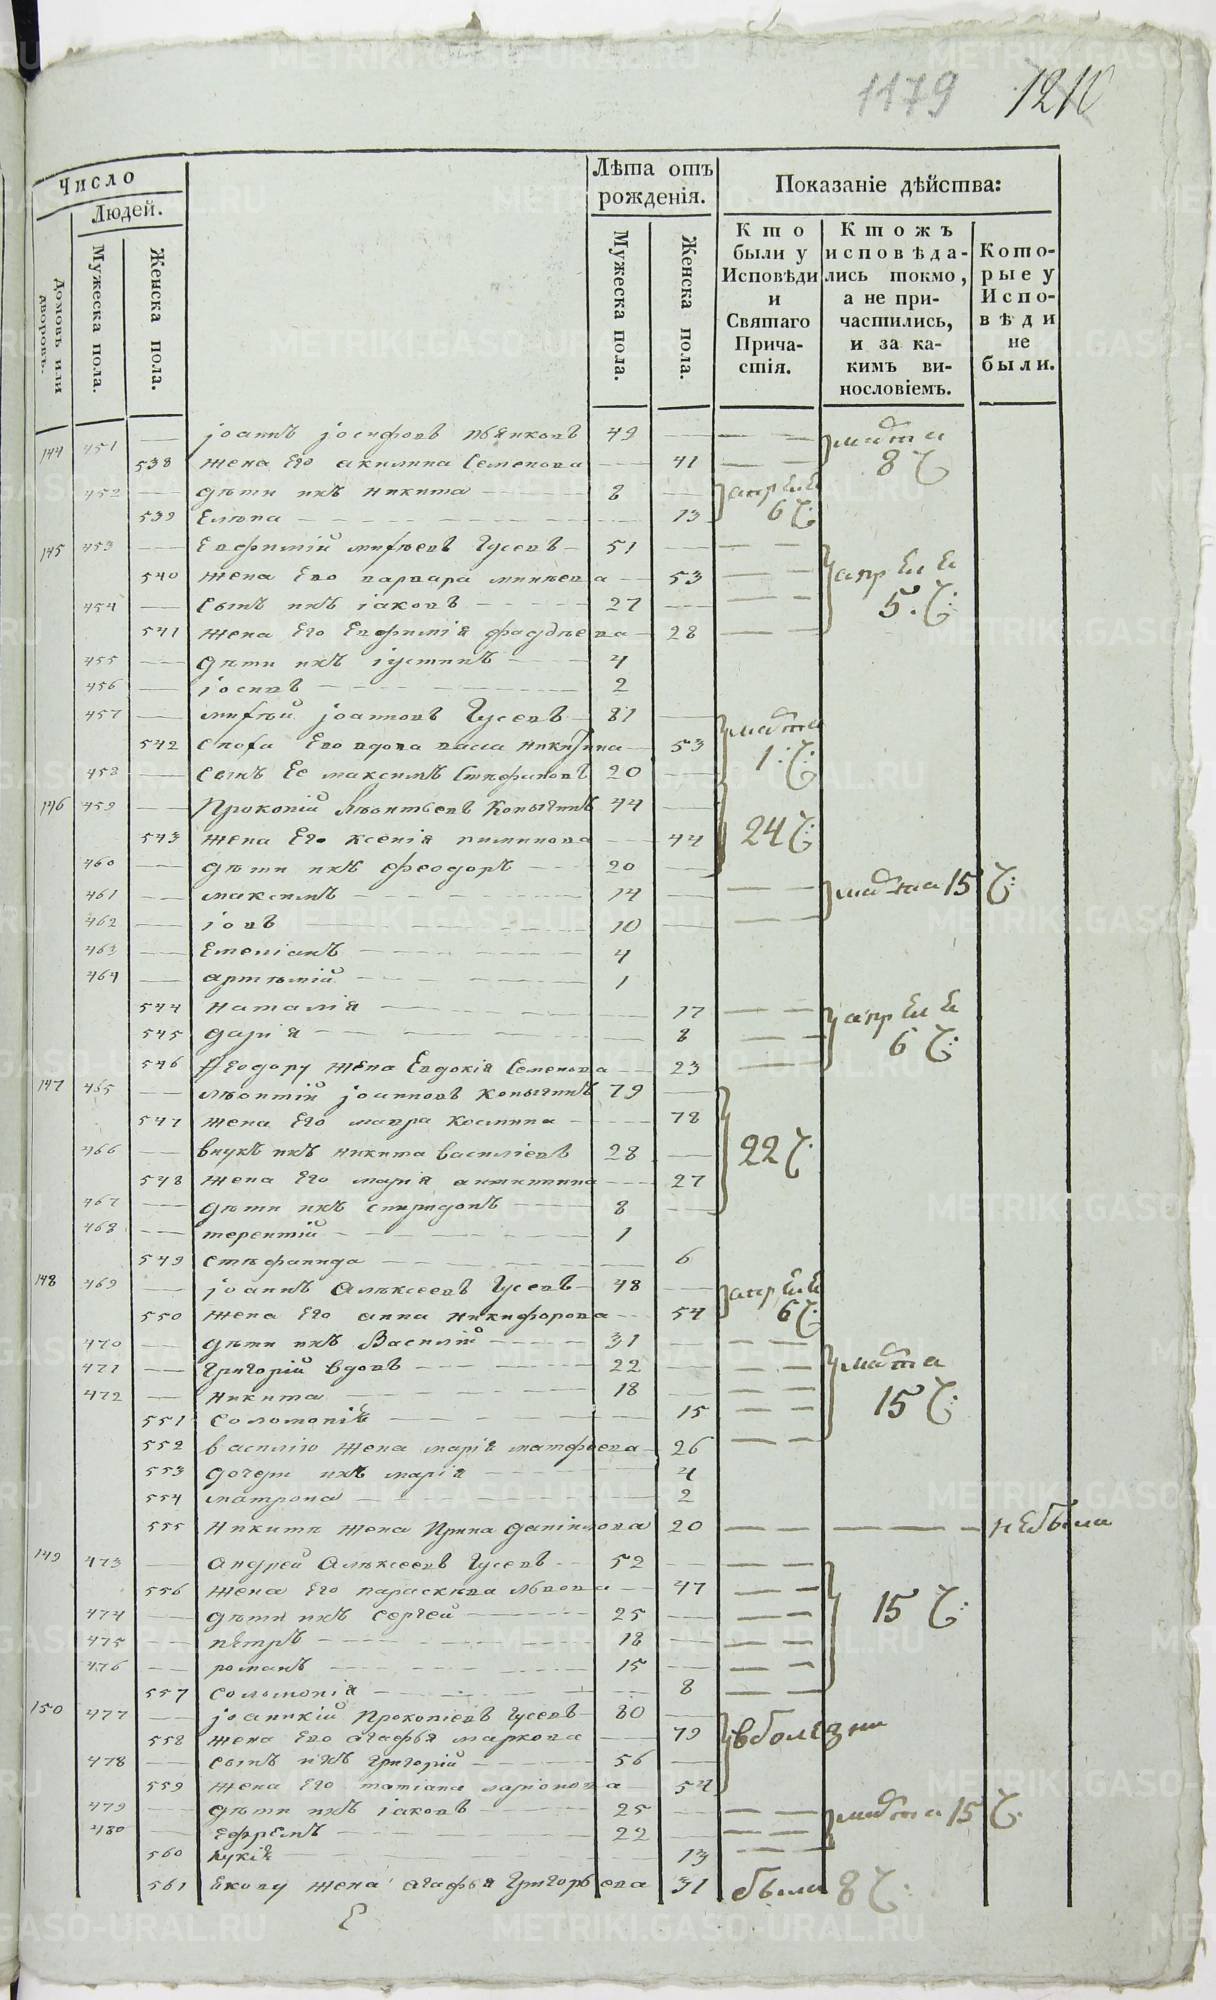 1179 1210
Число
Людей.
Домовъ или дворовъ.
Мужеска пола.
Женска пола.
Лѣта отъ рожденія.
Мужеска пола.
Женска пола.
Показаніе дѣйства:
Кто были у Исповѣди и Святаго Причастія.
Ктожъ исповѣдались токмо, а не причастились, и за какимъ винословіемъ.
Которые у Исповѣди не были.
144 451 — Іоаннъ Іосифовъ 49 — марта
538 жена Его акилина Семенова — 41 8 Ч:
452 — дѣти ихъ никита 8 — апреля
539 Елѣна — 13 6 Ч:
145 453 — Евфимій миѳѣевъ Гусевъ 51 —
540 жена Его варвара минѣева — 53 апреля
454 — сынъ ихъ іаковъ 27 — 5. Ч:
541 жена Его Евфимія фаддѣева — 28
455 — дѣти ихъ іустинъ 4
456 — іосивъ 2
457 — миѳѣй іоанновъ Гусевъ 81 — марта
542 сноха Его вдова васса никитина — 53 1: Ч:
458 — сынъ Ее максимъ Стефановъ 20 —
146 459 — Прокопій Лѣонтьевъ Копыгинъ 44 —
543 жена Его ксенія пиминова — 44 24 Ч:
460 — дѣти ихъ феодоръ 20 —
461 — максимъ 14 — марта 15 Ч:
462 — іовъ 10 —
463 — Емеліанъ 4
464 — артѣмій 1
544 наталія — 17 апреля
545 дарія — 8 6 Ч:
546 Ѳеодору жена Евдокія Семенова — 23
147 465 — лѣонтій іоанновъ Копыгинъ 79 —
547 жена Его мавра космина — 78
466 — внукъ ихъ никита василіевъ 28 — 22 Ч:
548 жена Его марія — 27
467 — дѣти ихъ спиридонъ 8 —
468 — терентій 1
549 стѣфанида — 6
148 469 — іоаннъ Алѣксеевъ Гусевъ 48 — апреля
550 жена Его анна никифорова — 54 6 Ч:
470 — дѣти ихъ Василій 31 —
471 — Григорій вдовъ 22 — марта
472 — никита 18 — 15 Ч:
551 Соломонія — 15
552 василію жена марія матфеева — 26
553 дочери ихъ марія — 4
554 матрона — 2
555 Никитѣ жена Ирина даніилова 20 — — небыла
149 473 — Андрей Алѣксеевъ Гусевъ 52 —
556 жена Его параскѣва львова — 47
474 — дѣти ихъ сергей 25 — 15 Ч:
475 — пѣтръ 18 —
476 — романъ 15 —
557 соломонія — 8
150 477 — іоаникій Прокопіевъ Гусевъ 80 —
558 жена Его агафья маркова — 79 вболезни
478 — сынъ ихъ григорій 56 —
559 жена Его татіана ларіонова — 54
479 — дѣти ихъ іаковъ 25 — марта 15 Ч:
480 — ефремъ 22 —
560 лукія — 13
561 Якову жена агафья Григорьева 31 были 8 Ч: